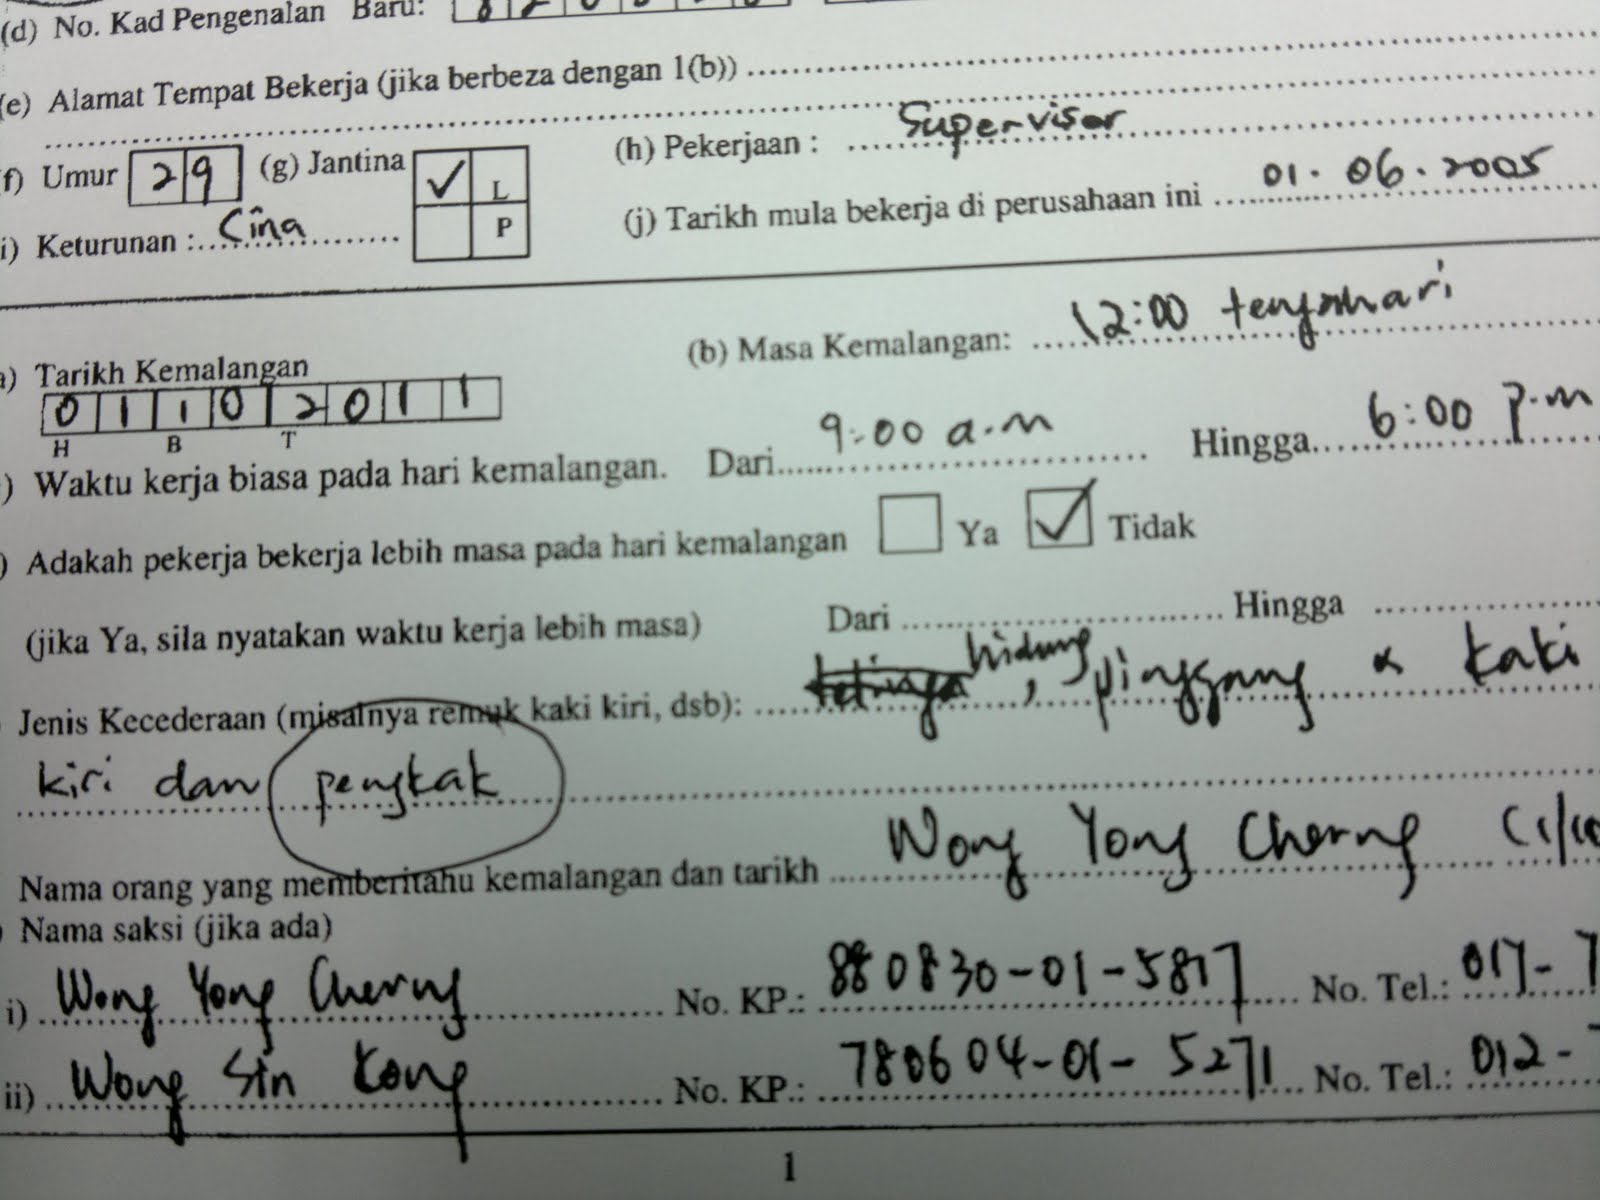 (d) No. Kad Pengenalan Baru:
(e) Alamat Tempat Bekerja (jika berbeza dengan 1(b))
f) Umur 29 (g) Jantina ✓ L P (h) Pekerjaan : Supervisor
i) Keturunan : Cina (j) Tarikh mula bekerja di perusahaan ini 01.06.2005
a) Tarikh Kemalangan (b) Masa Kemalangan: 12:00 tengahari
01102011
H B T
) Waktu kerja biasa pada hari kemalangan. Dari 9:00 a.m Hingga 6:00 p.m
) Adakah pekerja bekerja lebih masa pada hari kemalangan Ya ✓ Tidak
(jika Ya, sila nyatakan waktu kerja lebih masa) Dari Hingga
Jenis Kecederaan (misalnya remuk kaki kiri, dsb): hidung, pinggang & kaki
kiri dan pengkak
Nama orang yang memberitahu kemalangan dan tarikh Wong Yong Cherng
Nama saksi (jika ada)
i) Wong Yong Cherng No. KP.: 880830-01-5817 No. Tel.: 017-7
ii) Wong Sin Kong No. KP.: 780604-01-5271 No. Tel.: 012-
1